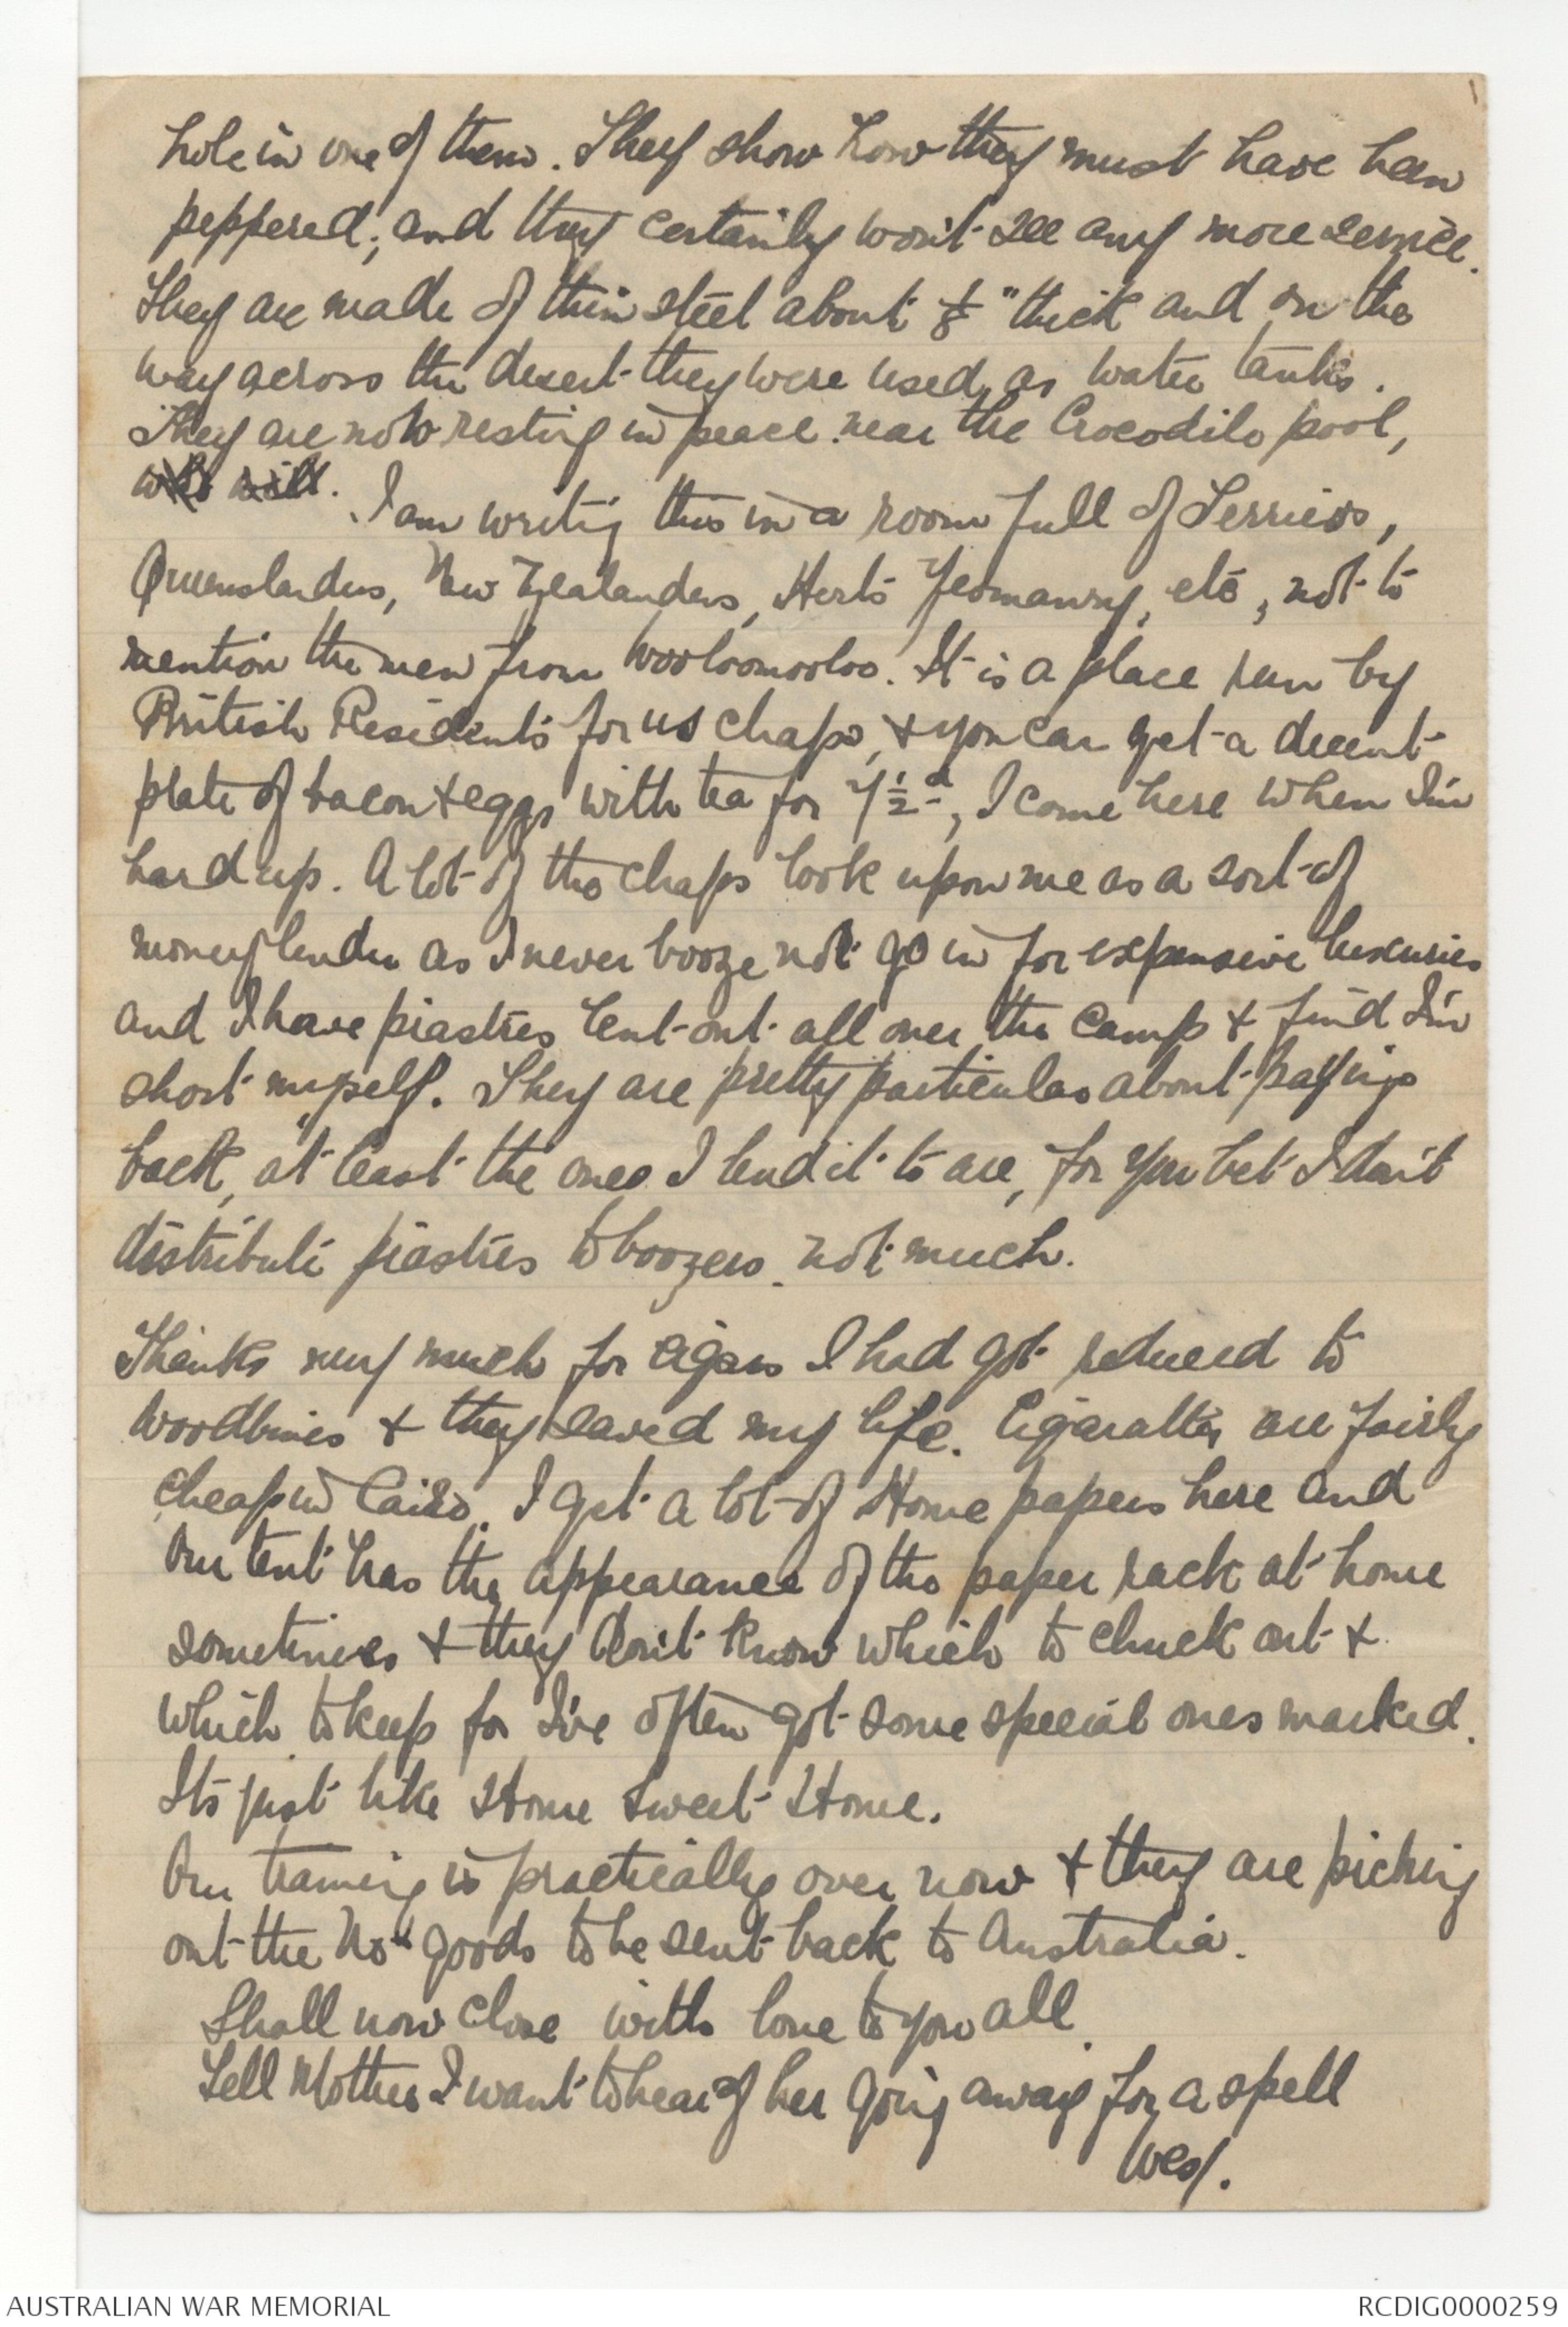 hole in one of them. They show how they must have been
peppered; and they certainly won't see any more service.
They are made of thin steel about 1/8" thick and on the
way across the desert they were used as water tanks.
They are now resting in peace near the Crocodile pool,
I am writing this in a room full of Terriers,
Queenslanders, New Zealanders, Herts Yeomanry, etc, not to
mention the men from Wooloomooloo. It is a place run by
British Residents for us chaps, & you can get a decent
plate of bacon & eggs with tea for 7½d, I come here when I'm
hard up. A lot of the chaps look upon me as a sort of
moneylender as I never booze not go in for expensive luxuries
and I have piastres lent out all over the camp & find I'm
short myself. They are pretty particular about paying
back, at least the ones I lend it to are, for you bet I don't
distribute piastres to boozers. not much.
Thanks very much for cigars I had got reduced to
woodbines & they saved my life. Cigarattes are fairly
cheap in Cairo. I get a lot of Home papers here and
our tent has the appearance of the paper rack at home
sometimes & they don't know which to chuck out &
which to keep for I've often got some special ones marked.
Its just like Home Sweet Home.
Our training is practically over now & they are picking
out the "No goods to be sent back to Australia.
Shall now close with love to you all
Tell Mother I want to hear of her going away for a spell
Wes/.
AUSTRALIAN WAR MEMORIAL
RCDIG0000259